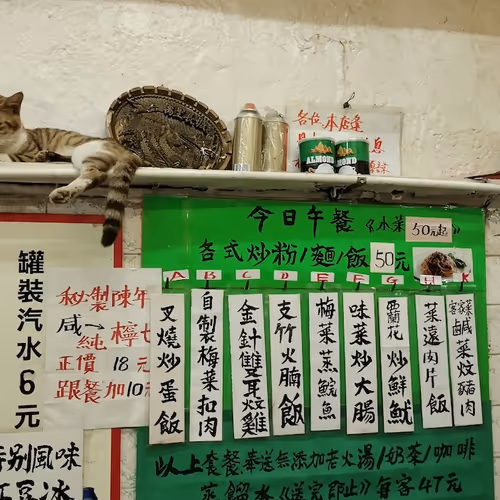 各位,本店逢
ALMOND
MOND
今日午餐《水菜 50元起》
各式炒粉/麵/飯 50元
A B C D E F G H K
叉燒炒蛋飯
自製梅菜扣肉
金針雙耳炆雞
支竹火腩飯
梅菜蒸鯇魚
味菜炒大腸
西蘭花炒鮮魷
菜遠肉片飯
客家鹹菜炆豬肉
以上套餐奉送無添加老火湯/奶茶/咖啡
蒸餾水《送完即止》每客47元
罐裝汽水6元
秘製陳年
咸→檸七
純
正價 18元
跟餐加10元
特别風味
紅豆冰